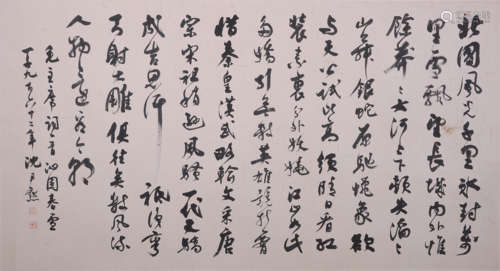 北國風光千里冰封萬
里雪飄望長城內外惟
餘莽莽大河上下頓失滔滔
山舞銀蛇原馳蠟象欲
與天公試比高須晴日看紅
裝素裹分外妖嬈江山如此
多嬌引無數英雄競折腰
惜秦皇漢武略輸文采唐
宗宋祖稍遜風騷一代天驕
成吉思汗 祇識彎
弓射大雕俱往矣數風流
人物還看今朝
毛主席詞一首沁園春雪
一千九百六十二年 沈尹默